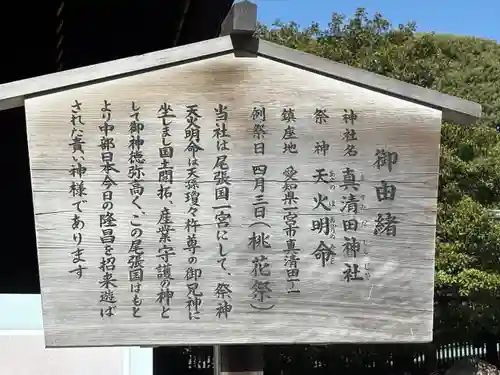 御由緒
神社名 真清田神社
ますみだじんじゃ
祭神 天火明命
あめのほあかりのみこと
鎮座地 愛知県一宮市真清田一丁
例祭日 四月三日（桃花祭）
当社は尾張国一宮にして、祭神
天火明命は天孫瓊々杵尊の御兄神に
坐しまし国土開拓、産業守護の神と
して御神徳弥高く、この尾張国はもと
より中部日本今日の隆昌を招来遊ば
された貴い神様であります